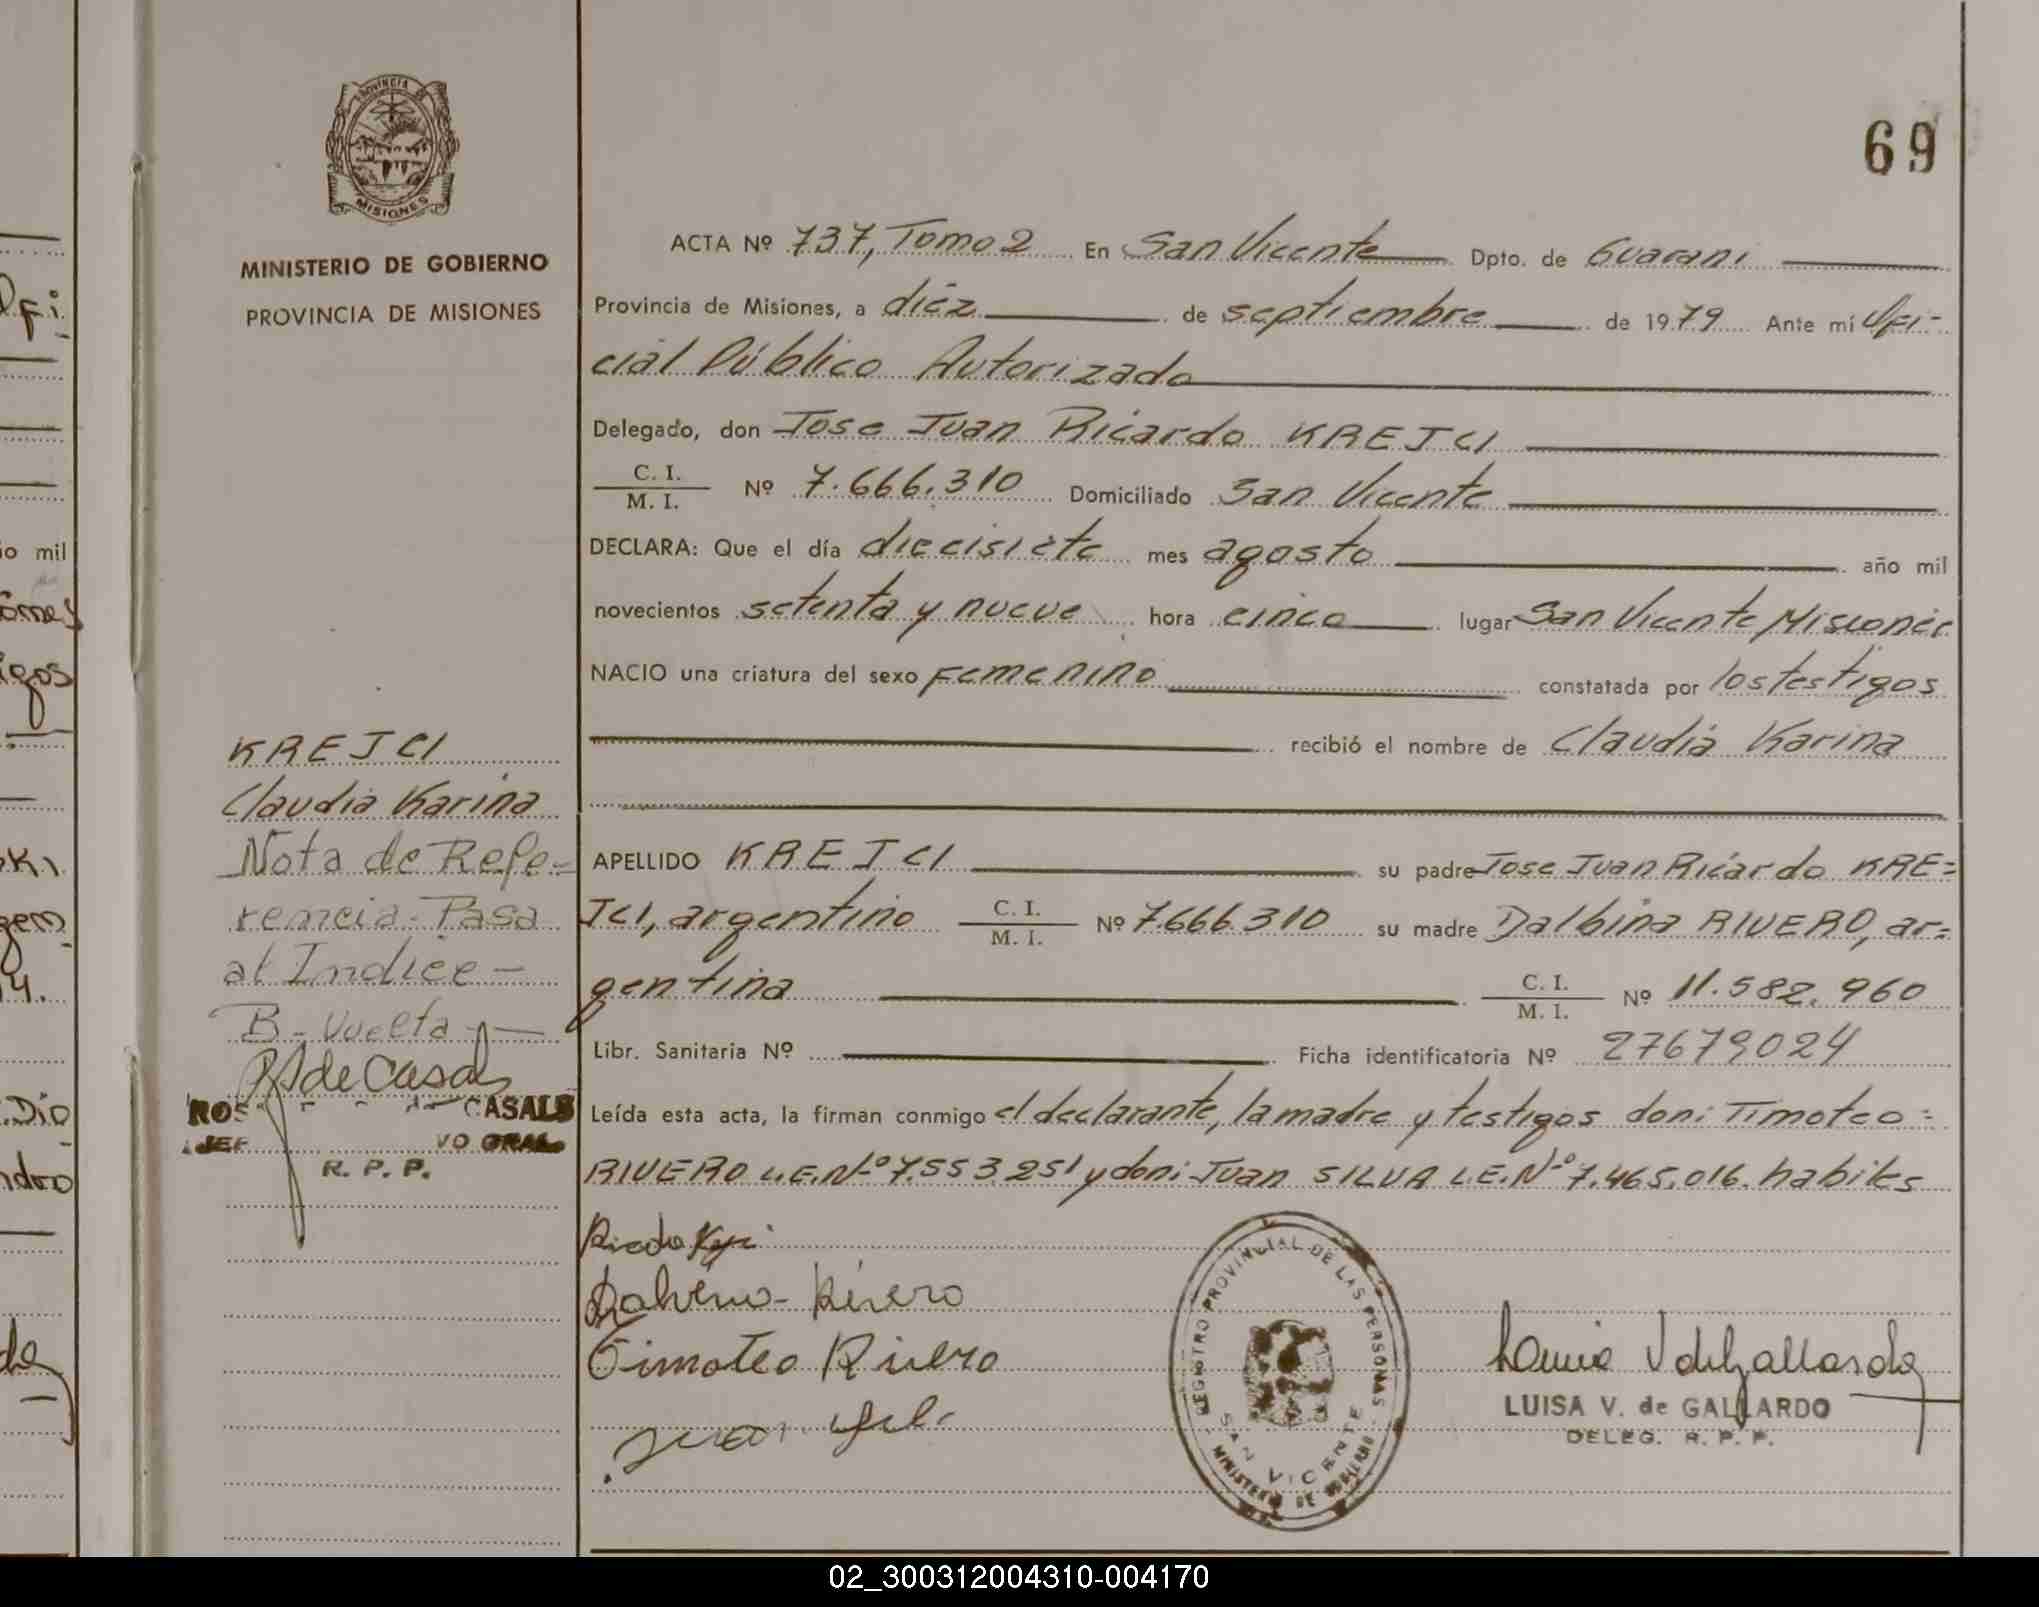 PROVINCIA DE
MISIONES
MINISTERIO DE GOBIERNO
PROVINCIA DE MISIONES
69
ACTA Nº 737, Tomo 2 En San Vicente Dpto. de Guarani
Provincia de Misiones, a diéz de septiembre de 1979 Ante mí Ofi-
cial Público Autorizado
Delegado, don Jose Juan Ricardo KREJCI
C. I. / M. I. Nº 7.666.310 Domiciliado San Vicente
DECLARA: Que el día diecisiete mes agosto año mil
novecientos setenta y nueve hora cinco lugar San Vicente Misiones
NACIO una criatura del sexo Femenino constatada por los testigos
recibió el nombre de Claudia Karina
APELLIDO KREJCI su padre Jose Juan Ricardo KRE=
JCI, argentino C. I. / M. I. Nº 7.666.310 su madre Dalbina RIVERO, ar=
gentina C. I. / M. I. Nº 11.582.960
Libr. Sanitaria Nº Ficha identificatoria Nº 27679024
Leída esta acta, la firman conmigo el declarante, la madre y testigos don: Timoteo =
RIVERO L.E.Nº 7.553.251 y don: Juan SILVA L.E.Nº 7.465.016. habiles
KREJCI
Claudia Karina
Nota de Refe-
rencia. Pasa
al Indice-
B- Vuelta
de Casals
CASALS
JEF VO GRAL
R. P. P.
Timoteo Rivero
REGISTRO PROVINCIAL DE LAS PERSONAS
SAN VICENTE
MINISTERIO DE GOBIERNO
LUISA V. de GALLARDO
DELEG. R. P. P.
ño mil
igos
02_300312004310-004170